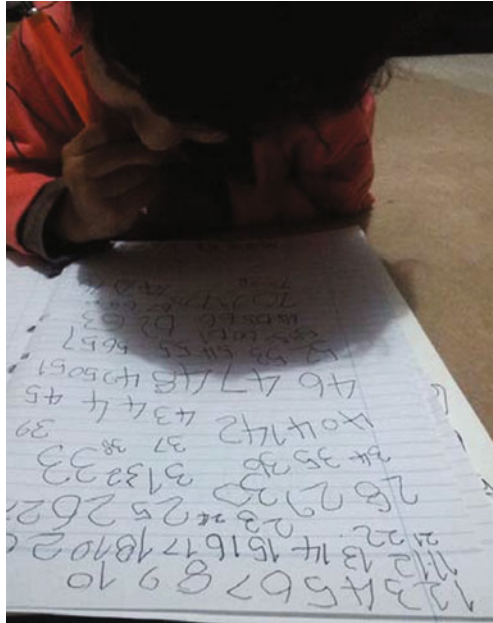 1 2 3 4 5 6 7 8 9 10
11 12 13 14 15 16 17 18 19 20
21 22 23 24 25 26 27
28 29 30 31 32 33
34 35 36 37 38 39
40 41 42 43 44 45
46 47 48 49 50 51
52 53 54 55 56 57
62 63